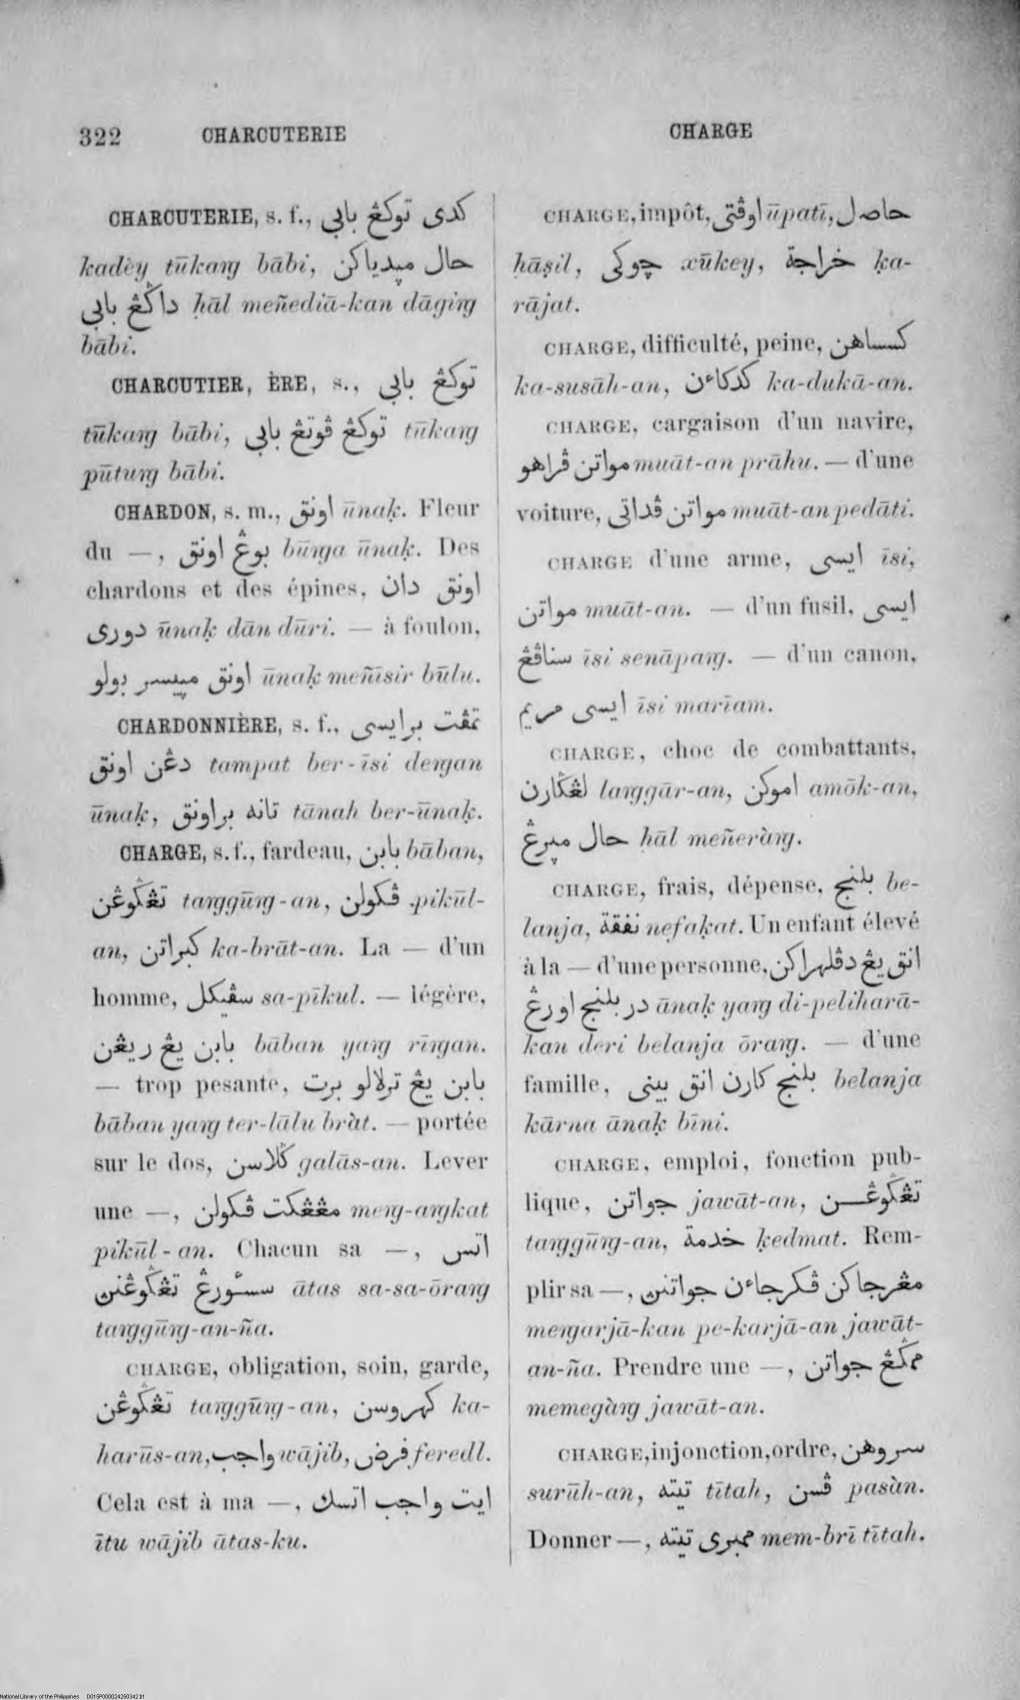 322 CHARCUTERIE CHARGE
CHARCUTERIE, s. f., كدى توكڠ بابي
kadèy tūkaŋg bābi, حال مڽدياكن
داڬڠ بابي ḥāl meñediā-kan dāgiŋg
bābi.
CHARCUTIER, ÈRE, s., توكڠ بابي
tūkaŋg bābi, توكڠ ڤوتڠ بابي tūkaŋg
pūtuŋg bābi.
CHARDON, s. m., اونق ūnaḳ. Fleur
du —, بوڠ اونق būŋga ūnaḳ. Des
chardons et des épines, اونق دان
دورى ūnaḳ dān dūri. — à foulon,
اونق مڽيسر بولو ūnaḳ meñīsir būlu.
CHARDONNIÈRE, s. f., تمڤت برايسى
دڠن اونق tampat ber-īsi deŋgan
ūnaḳ, تانه براونق tānah ber-ūnaḳ.
CHARGE, s. f., fardeau, بابن bāban,
تڠڬوڠن taŋggūŋg-an, ڤكولن pikūl-
an, كبراتن ka-brāt-an. La — d'un
homme, سڤيكل sa-pīkul. — légère,
بابن يڠ ريڠن bāban yaŋg rīŋgan.
— trop pesante, بابن يڠ ترلالو برت
bāban yaŋg ter-lālu bràt. — portée
sur le dos, ݢلاسن galās-an. Lever
une —, مڠڠكت ڤكولن meŋg-aŋgkat
pikūl-an. Chacun sa —, اتس
سسٔورڠ تڠڬوڠنڽ ātas sa-sa-ōraŋg
taŋggūŋg-an-ña.
CHARGE, obligation, soin, garde,
تڠڬوڠن taŋggūŋg-an, كهروسن ka-
harūs-an, واجب wājib, فرض feredl.
Cela est à ma —, ايت واجب اتسك
ītu wājib ātas-ku.
CHARGE, impôt, اوڤتى ūpatī, حاصل
ḥāṣil, چوكى xūkey, خراجة ḳa-
rājat.
CHARGE, difficulté, peine, كسساهن
ka-susāh-an, كدكاءن ka-dukā-an.
CHARGE, cargaison d'un navire,
مواتن ڤراهو muāt-an prāhu. — d'une
voiture, مواتن ڤداتى muāt-an pedāti.
CHARGE d'une arme, ايسى īsi,
مواتن muāt-an. — d'un fusil, ايسى
سناڤڠ īsi senāpaŋg. — d'un canon,
ايسى مريم īsi marīam.
CHARGE, choc de combattants,
لڠڬارن laŋggār-an, اموكن amōk-an,
حال مڽرڠ ḥāl meñeràŋg.
CHARGE, frais, dépense, بلنج be-
lanja, نفقة nefaḳat. Un enfant élevé
à la — d'une personne, انق يڠ دڤلهراكن
در بلنج اورڠ ānaḳ yaŋg di-peliharā-
kan deri belanja ōraŋg. — d'une
famille, بلنج كارن انق بينى belanja
kārna ānaḳ bīni.
CHARGE, emploi, fonction pub-
lique, جواتن jawāt-an, تڠڬوڠن
taŋggūŋg-an, خدمة ḳedmat. Rem-
plir sa —, مڠرجاكن ڤكرجاءن جواتنڽ
meŋgarjā-kan pe-karjā-an jawāt-
an-ña. Prendre une —, ممڬڠ جواتن
memegàŋg jawāt-an.
CHARGE, injonction, ordre, سروهن
surūh-an, تيته tītah, ڤسن pasàn.
Donner —, ممبرى تيته mem-brī tītah.
National Library of the Philippines